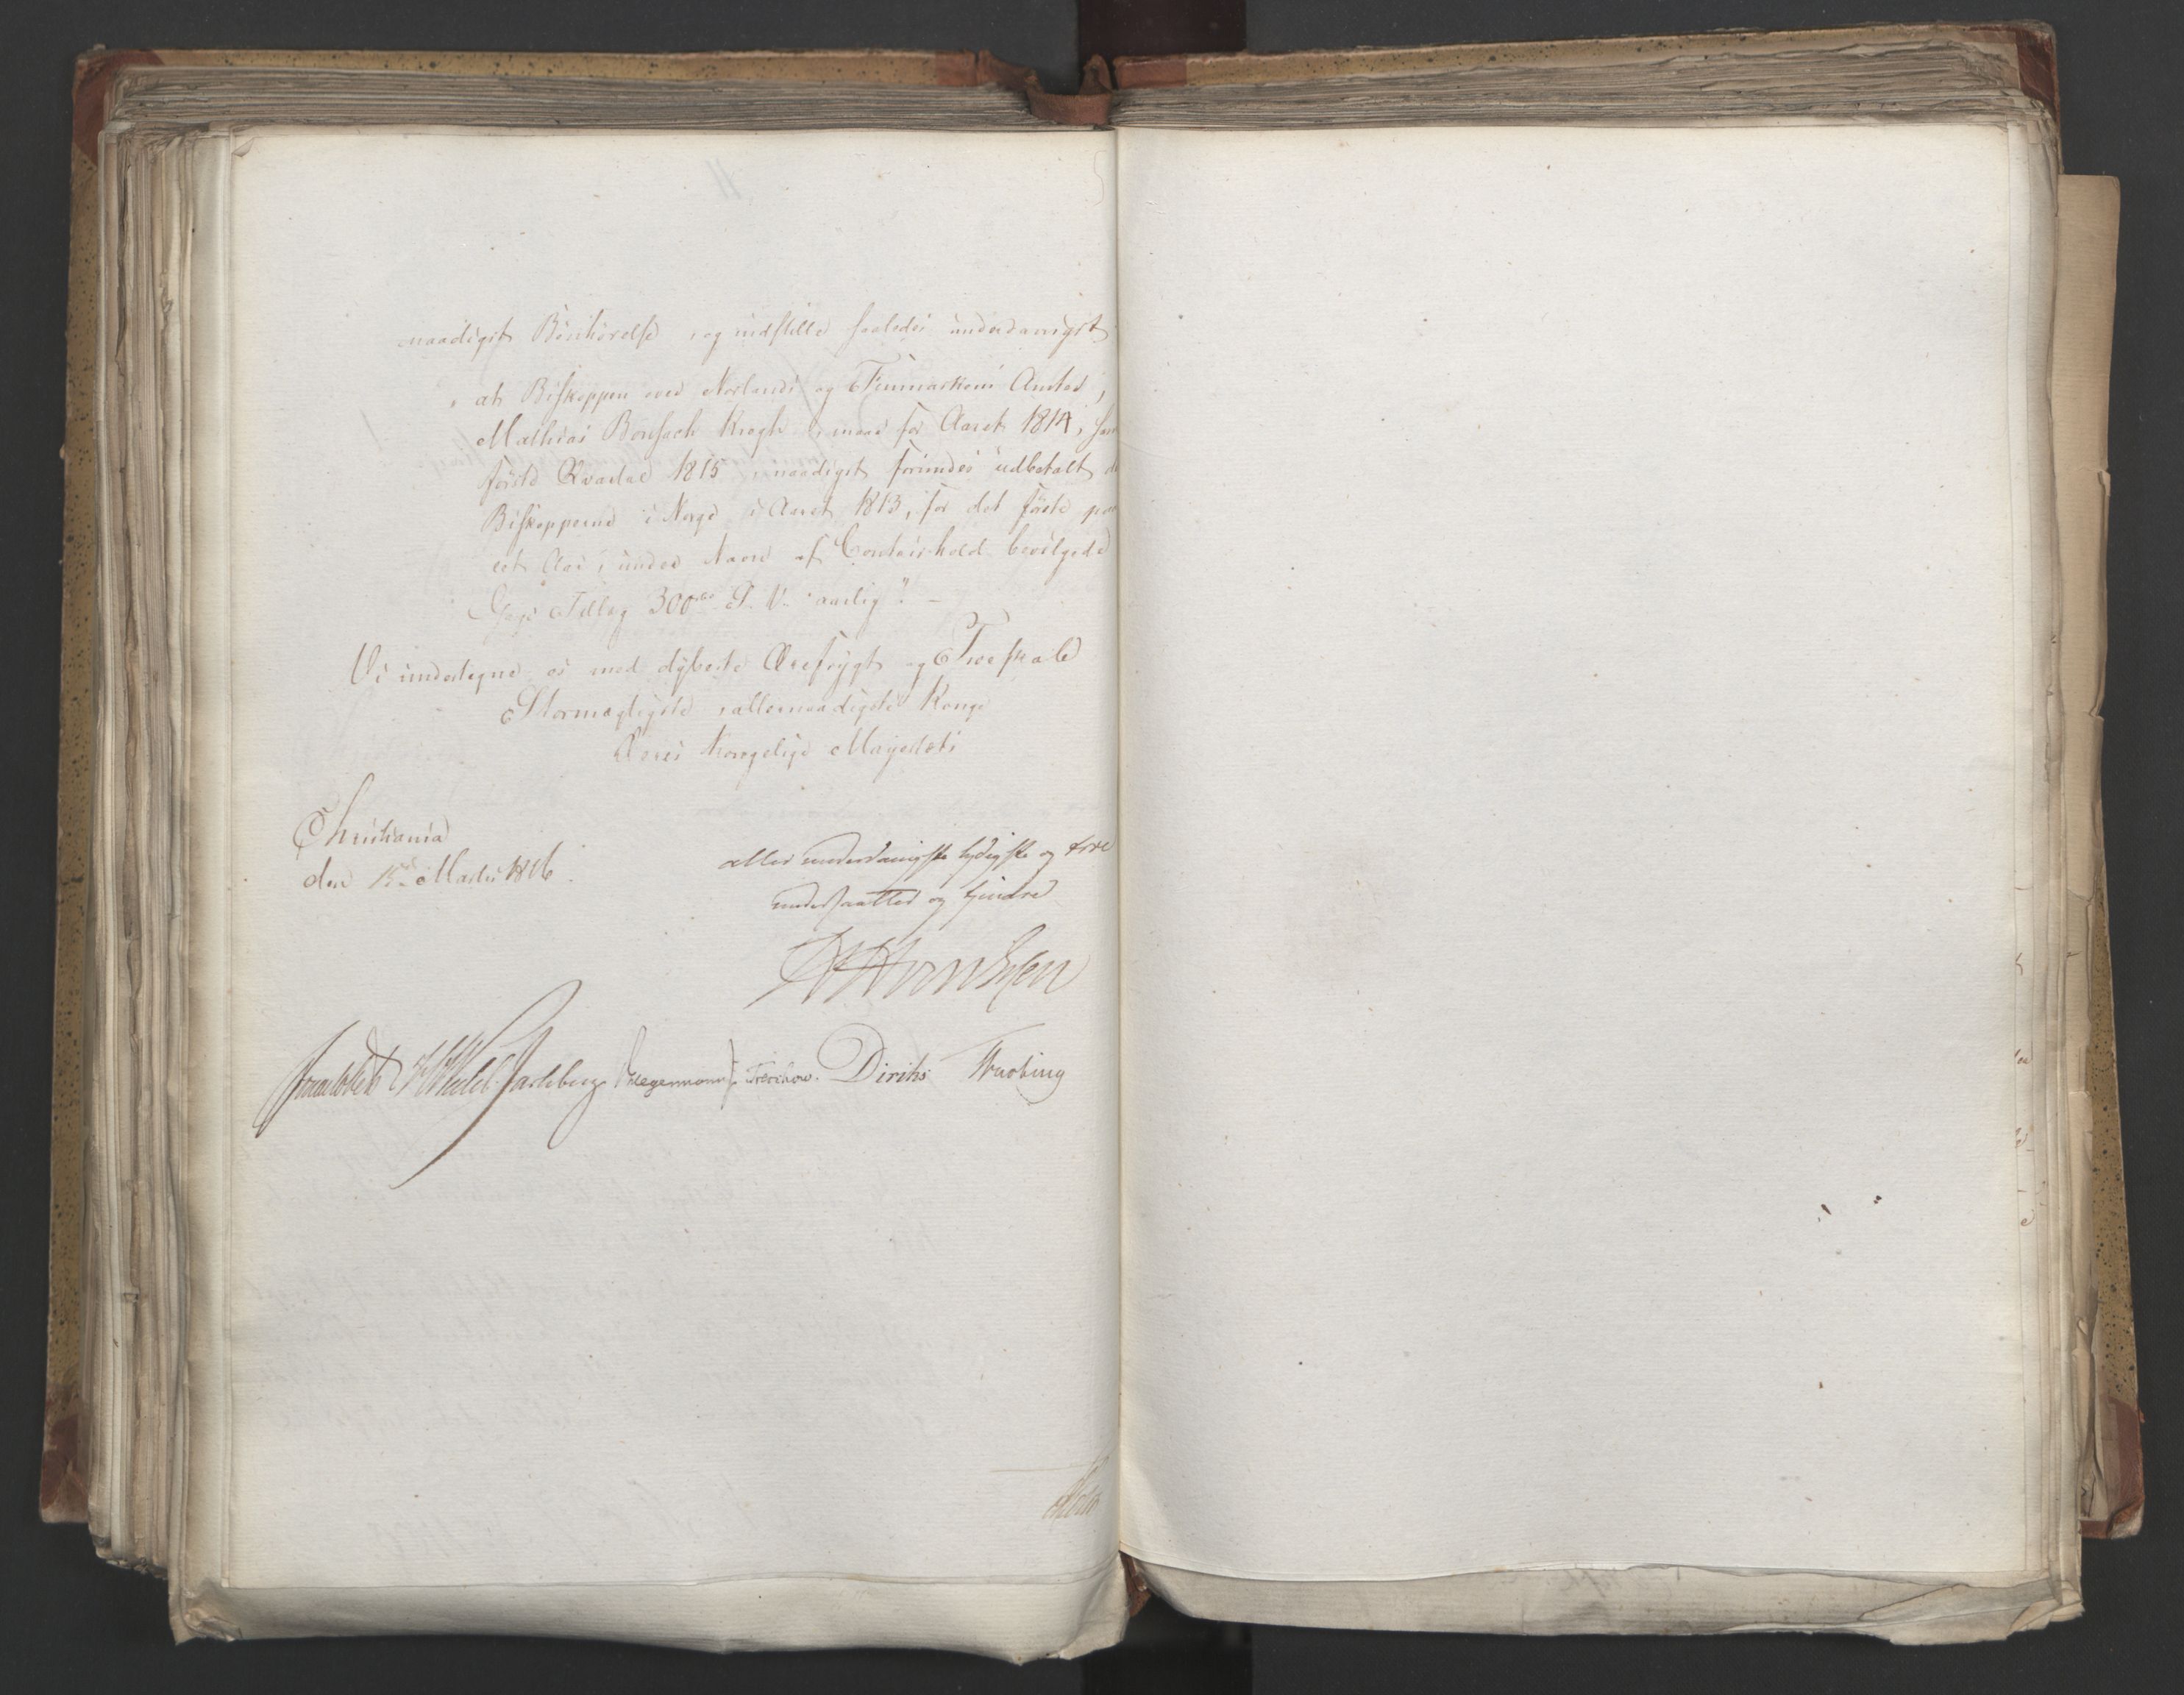 naadigst Bönhörelse, og indstille saaledes underdanigst
"at Biskoppen over Norlands og Finmarkens Amter,
Mathias Bonsach Krogh, maae for Aaret 1814, samt
förste Qvartal 1815 naadigst forundes udbetalt det
Biskopperne i Norge i Aaret 1813, for det förste paa
eet Aar, under Navn af Contoirhold bevilgede
Gage Tillæg 300 rbd. S. V. aarlig". –
Vi undertegne os med dybeste Ærefrygt og Troeskab
Stormægtigste, allernaadigste Konge
Deres Kongelige Majestæts
Christiania
den 15de Marts 1816.
aller underdanigste lydigste og troe
undersaatter og tjenere
Sommerhielm
Wedel Jarlsberg Hegermann Treschow. Diriks